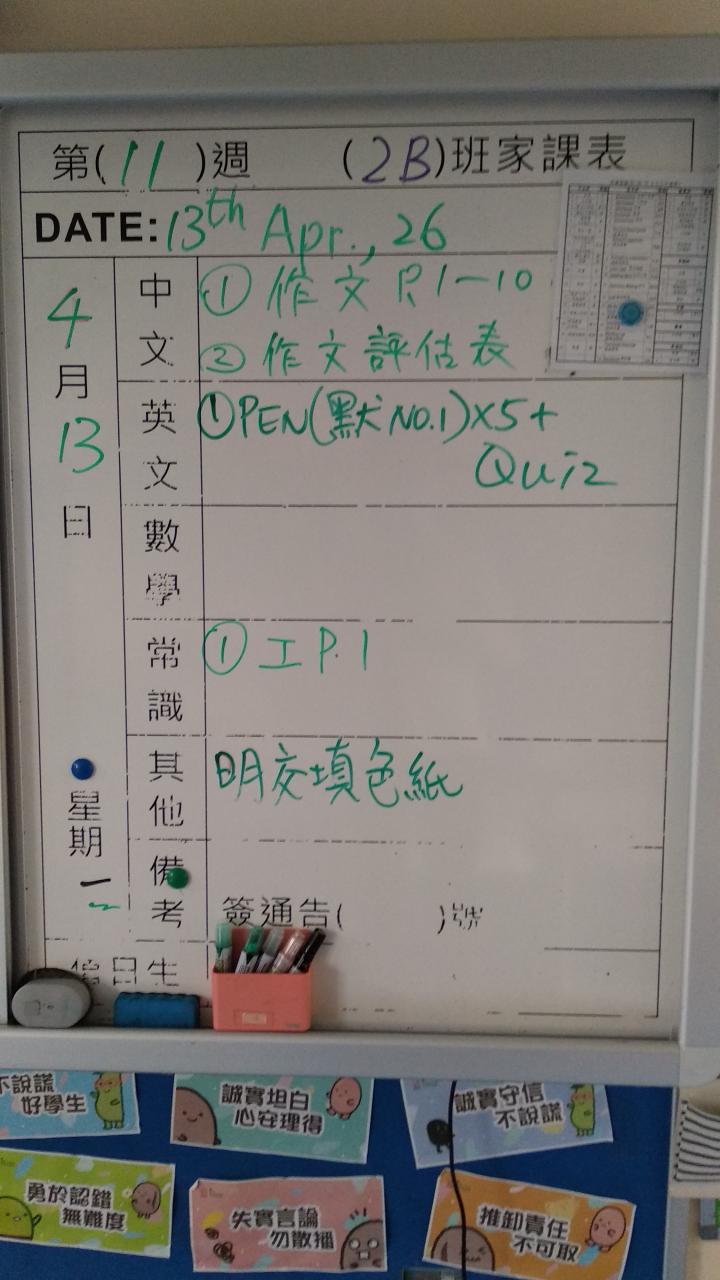 第(11)週 (2B)班家課表
DATE: 13th Apr., 26
4月13日
星期一
中文
① 作文 P.1-10
② 作文評估表
英文
① PEN(默NO.1)x5+
Quiz
數學
常識
① 工 P.1
其他
明交填色紙
備考
簽通告( )號
值日生
不說謊
好學生
誠實坦白
心安理得
誠實守信
不說謊
勇於認錯
無難度
失實言論
勿散播
推卸責任
不可取